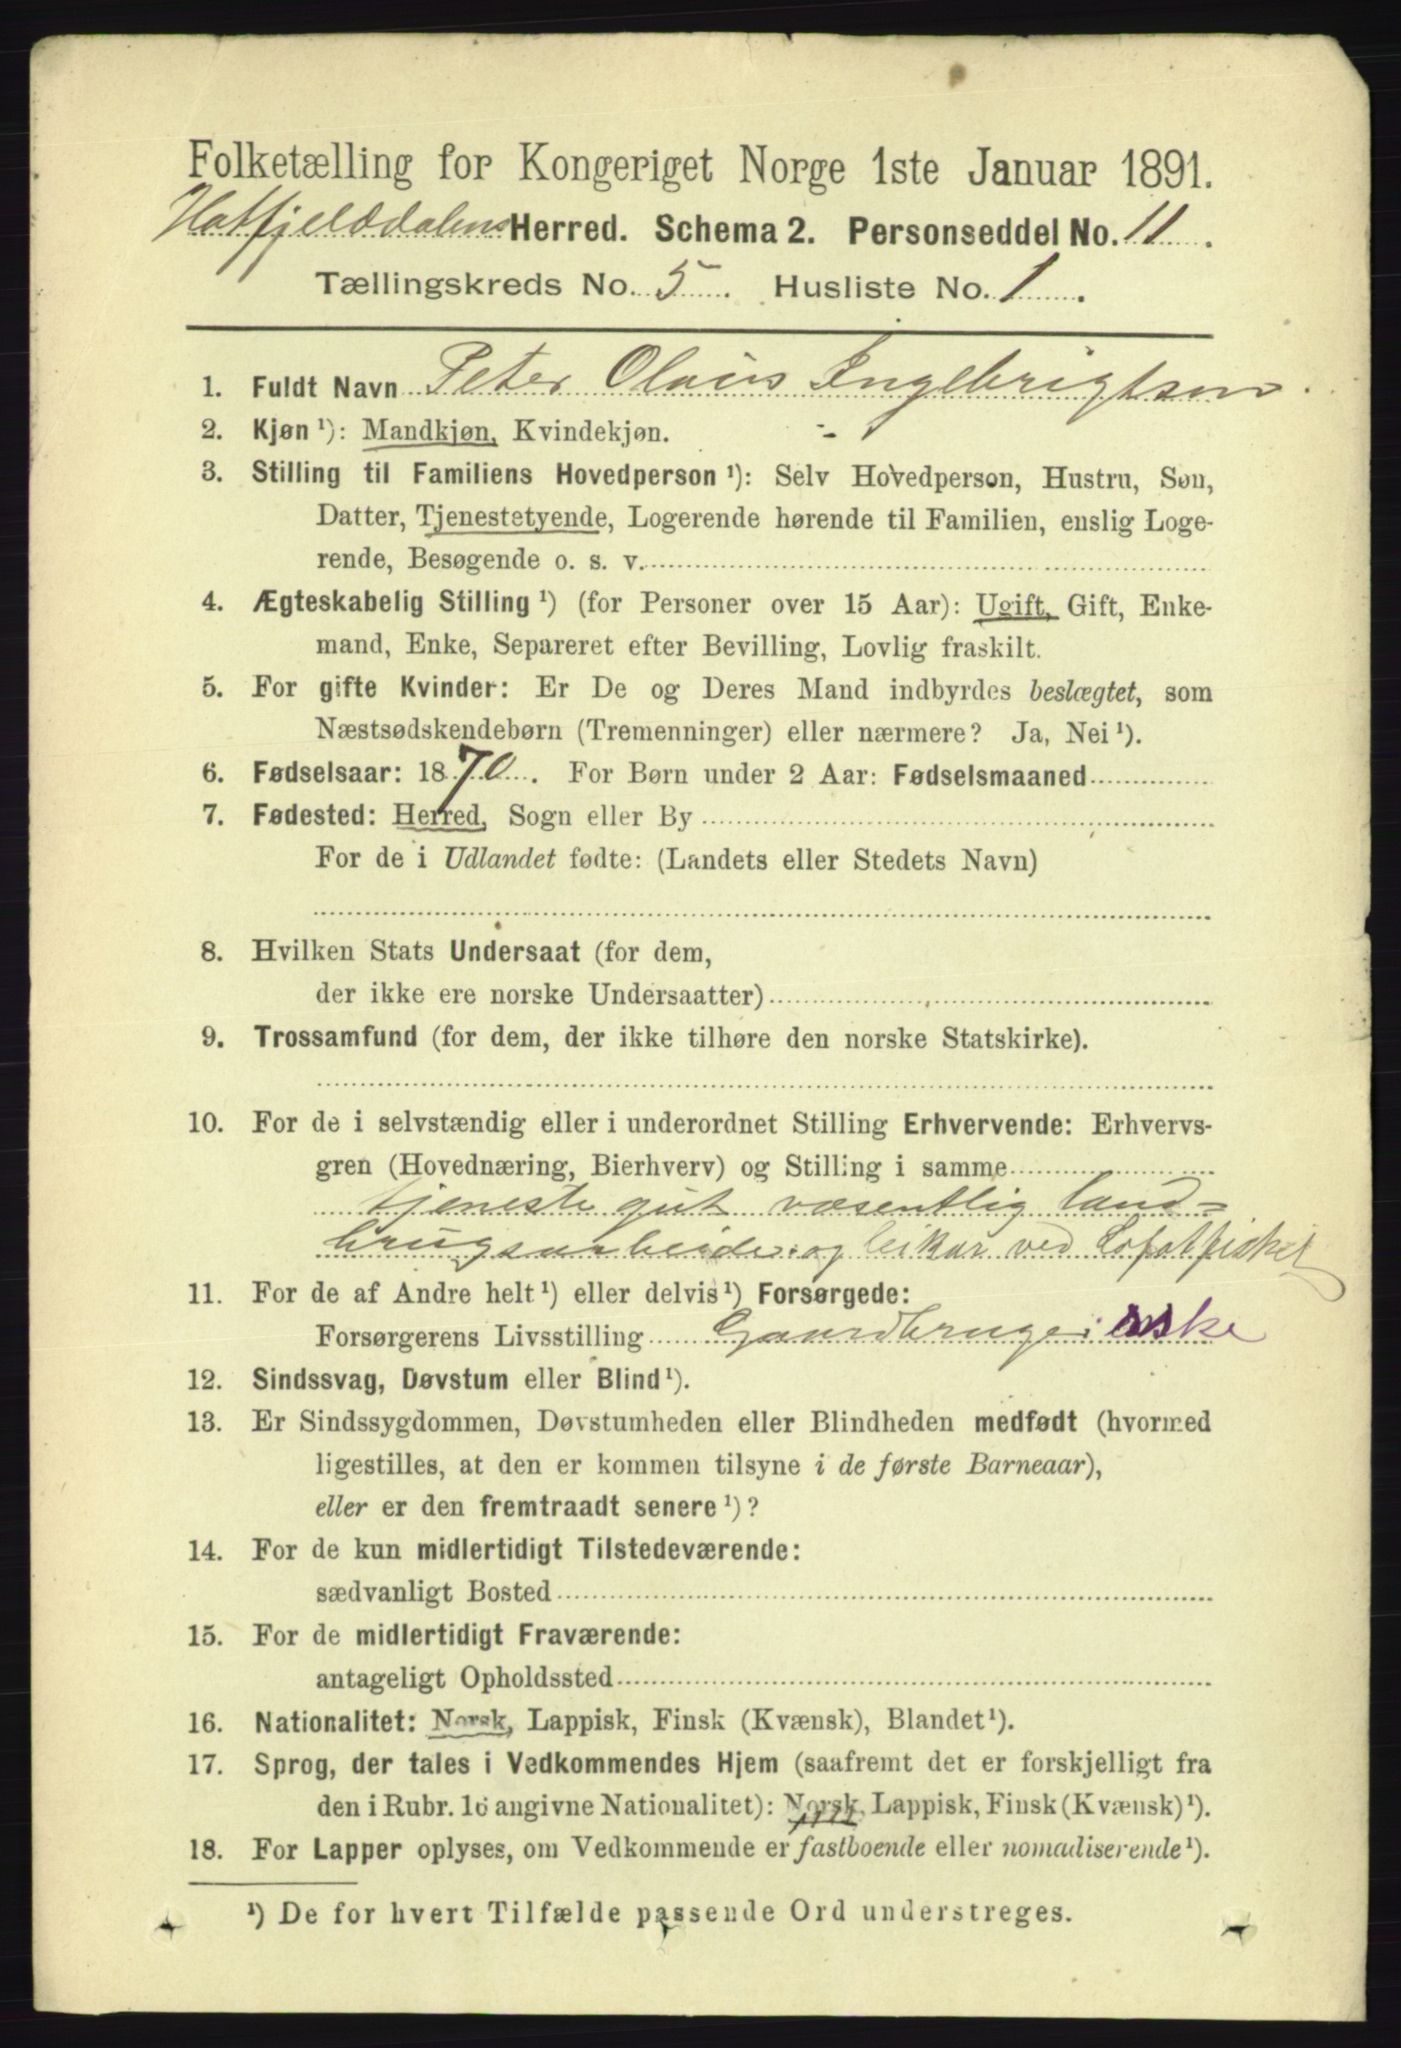 Folketælling for Kongeriget Norge 1ste Januar 1891.
Hatfjelddalens Herred. Schema 2. Personseddel No. 11.
Tællingskreds No. 5. Husliste No. 1.
1. Fuldt Navn Peter Olaus Ingebrigtsen.
2. Kjøn ¹): Mandkjøn, Kvindekjøn.
3. Stilling til Familiens Hovedperson ¹): Selv Hovedperson, Hustru, Søn,
Datter, Tjenestetyende, Logerende hørende til Familien, enslig Loge-
rende, Besøgende o. s. v.
4. Ægteskabelig Stilling ¹) (for Personer over 15 Aar): Ugift, Gift, Enke-
mand, Enke, Separeret efter Bevilling, Lovlig fraskilt.
5. For gifte Kvinder: Er De og Deres Mand indbyrdes beslægtet, som
Næstsødskendebørn (Tremenninger) eller nærmere? Ja, Nei ¹).
6. Fødselsaar: 1870. For Børn under 2 Aar: Fødselsmaaned
7. Fødested: Herred, Sogn eller By
For de i Udlandet fødte: (Landets eller Stedets Navn)
8. Hvilken Stats Undersaat (for dem,
der ikke ere norske Undersaatter)
9. Trossamfund (for dem, der ikke tilhøre den norske Statskirke).
10. For de i selvstændig eller i underordnet Stilling Erhvervende: Erhvervs-
gren (Hovednæring, Bierhverv) og Stilling i samme
tjeneste gut væsentlig land=
brugsarbeider og leikar ved Lofotfisket
11. For de af Andre helt ¹) eller delvis ¹) Forsørgede:
Forsørgerens Livsstilling Gaardbruger
12. Sindssvag, Døvstum eller Blind ¹).
13. Er Sindssygdommen, Døvstumheden eller Blindheden medfødt (hvormed
ligestilles, at den er kommen tilsyne i de første Barneaar),
eller er den fremtraadt senere ¹)?
14. For de kun midlertidigt Tilstedeværende:
sædvanligt Bosted
15. For de midlertidigt Fraværende:
antageligt Opholdssted
16. Nationalitet: Norsk, Lappisk, Finsk (Kvænsk), Blandet ¹).
17. Sprog, der tales i Vedkommendes Hjem (saafremt det er forskjelligt fra
den i Rubr. 16 angivne Nationalitet): Norsk, Lappisk, Finsk (Kvænsk) ¹).
18. For Lapper oplyses, om Vedkommende er fastboende eller nomadiserende ¹).
¹) De for hvert Tilfælde passende Ord understreges.